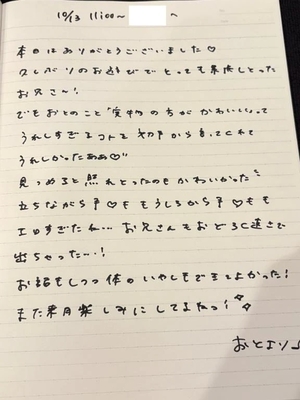 10/13 11:00〜 へ
本日はありがとうございました♡
久しぶりのお遊びでとっても緊張しとった
お兄さ〜!
でもおとのこと「実物の方がかわいい」って
うれしすぎるコトを初手から言ってくれて
うれしかったああ♡
見つめると照れとったのもかわいかった
立ちながら♡もうしろから♡もも
エロすぎたね…お兄さんもおどろく速さで
出ちゃった…!
お話もしつつ体のいやしもできてよかった!
また来月楽しみにしてるねっ!
おとより♪